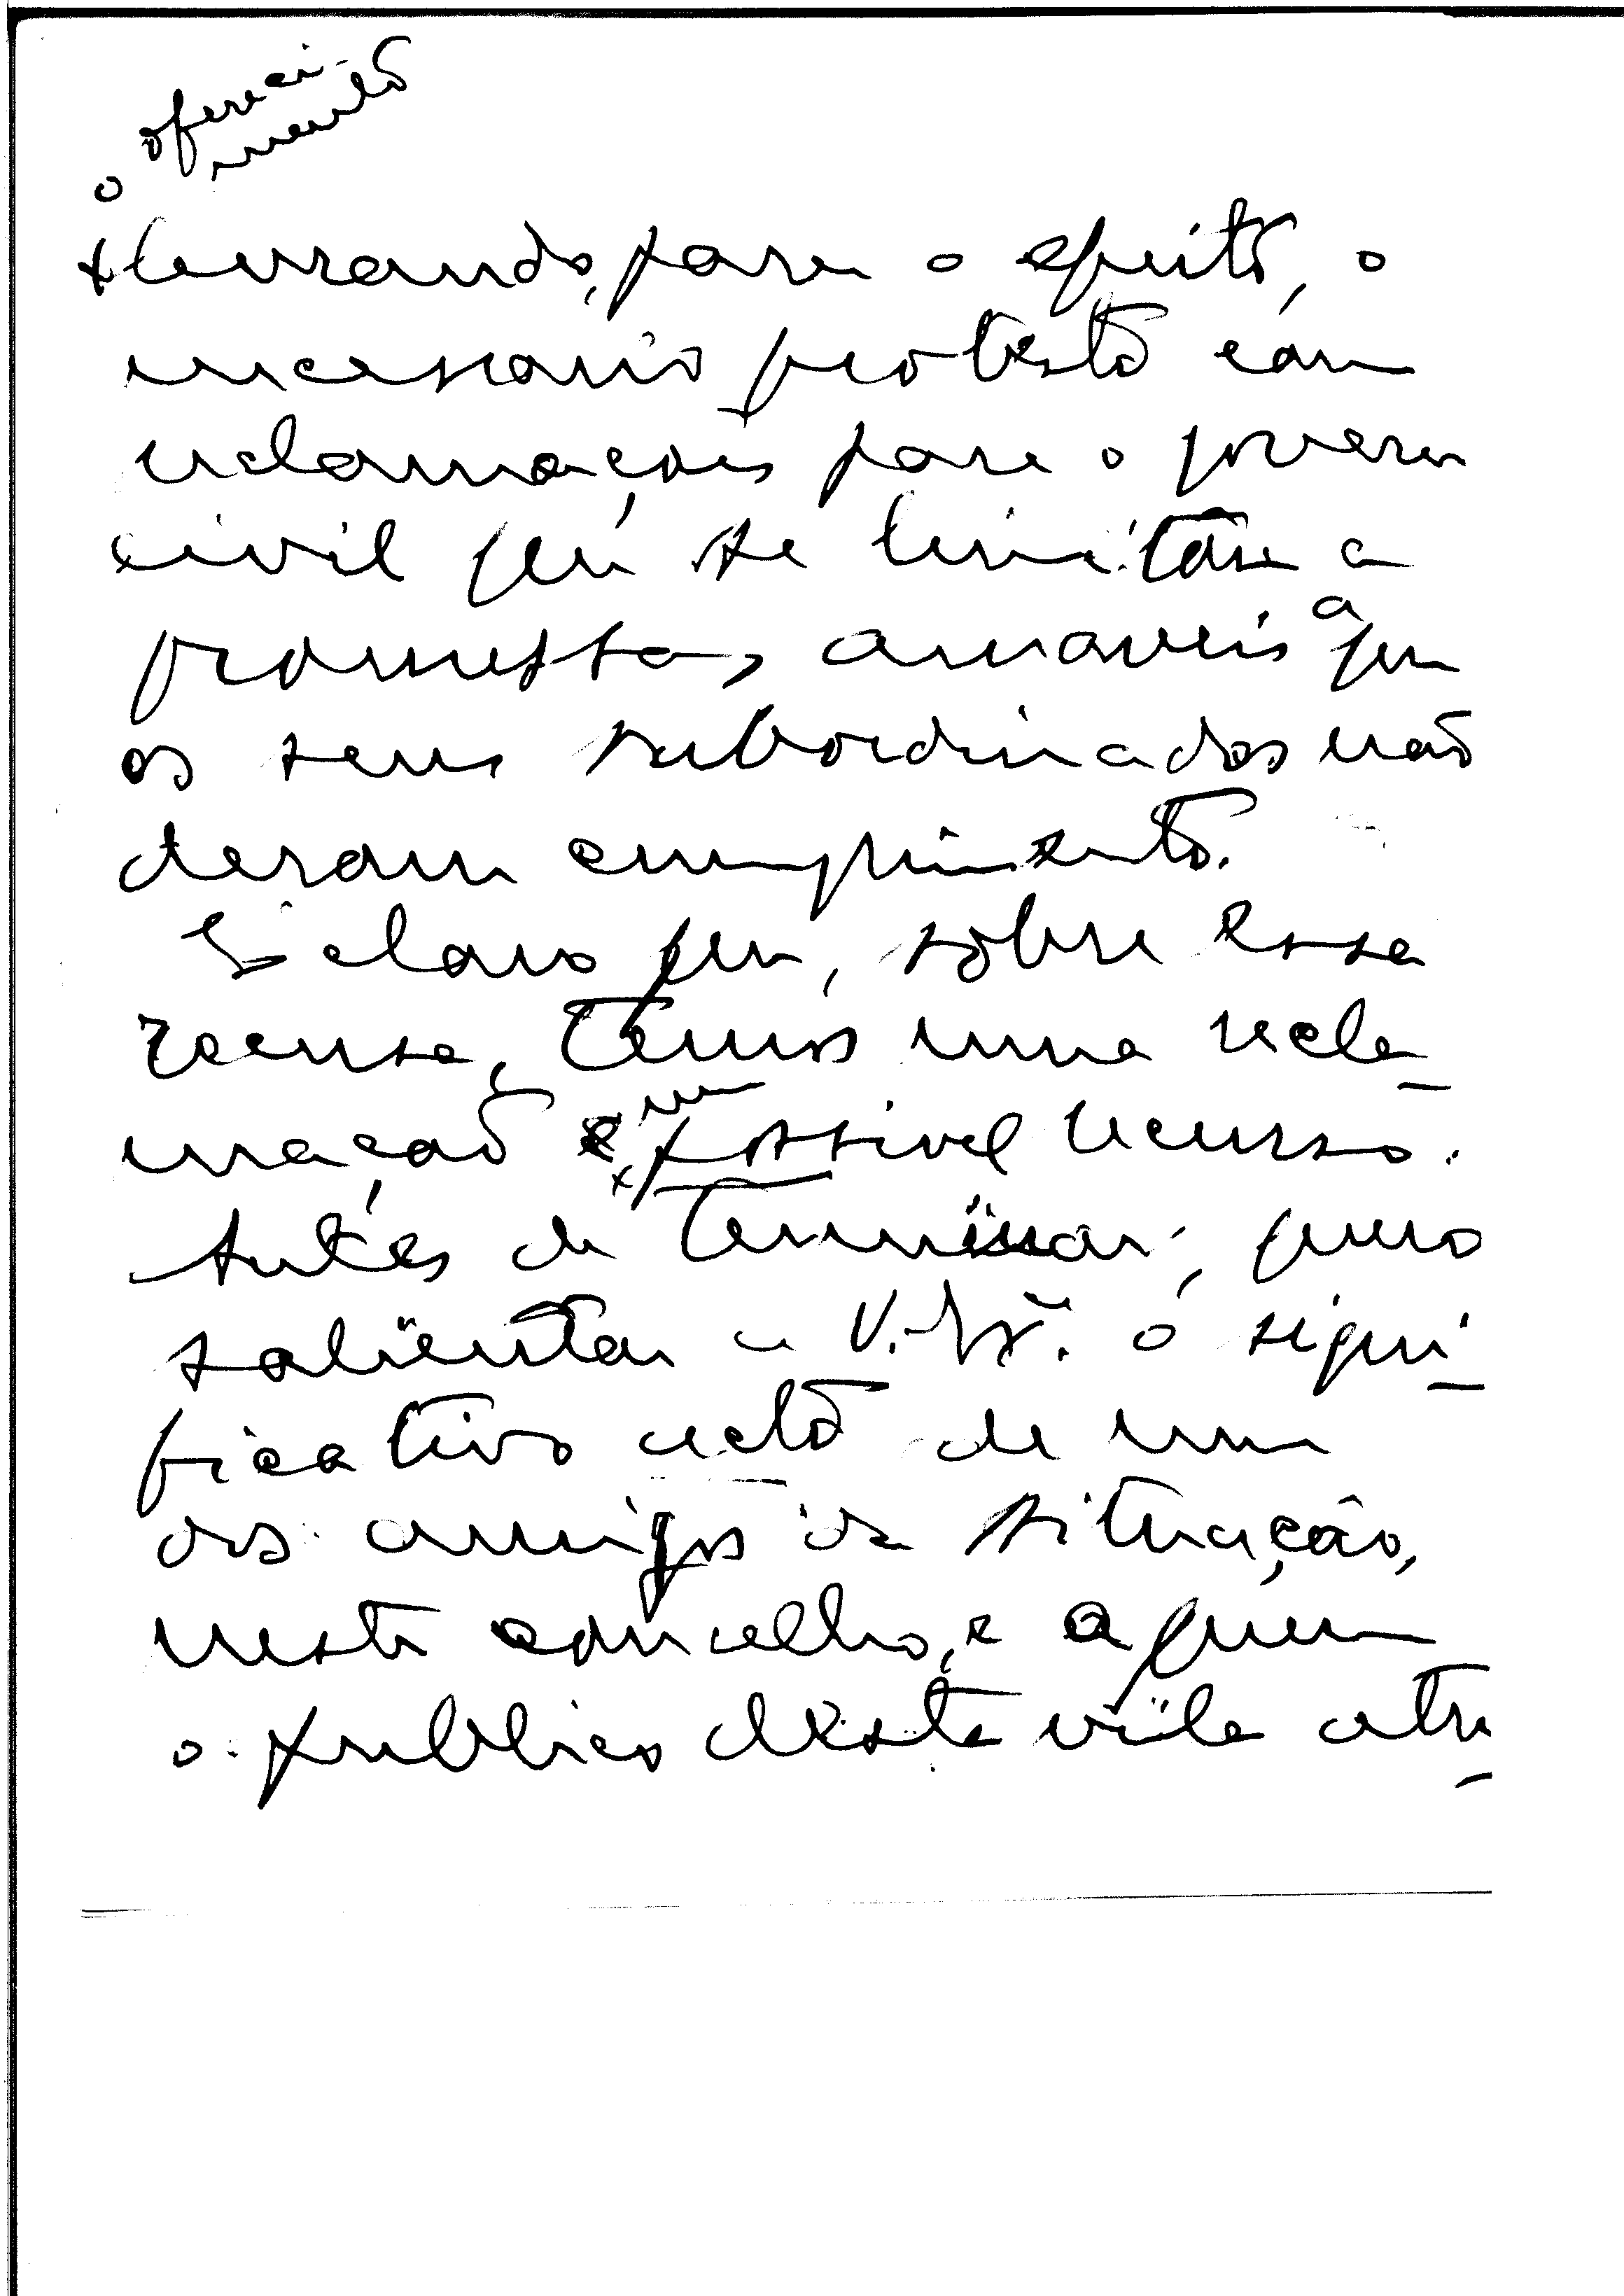 o ofereci-
mento
lavrando, para o efeito, o
necessario protesto com
reclamações para o govern
civil que se limitou a
promessas amaveis a que
os seus subordinados não
deram cumprimento.
É claro que, sobre essa
recusa, temos uma recla-
mação e um possivel recurso.
Antes de terminar, quero
salientar a V. Ex. o signi-
ficativo acto de um
dos amigos da situação,
neste concelho, e a quem
o publico desta vila atri-